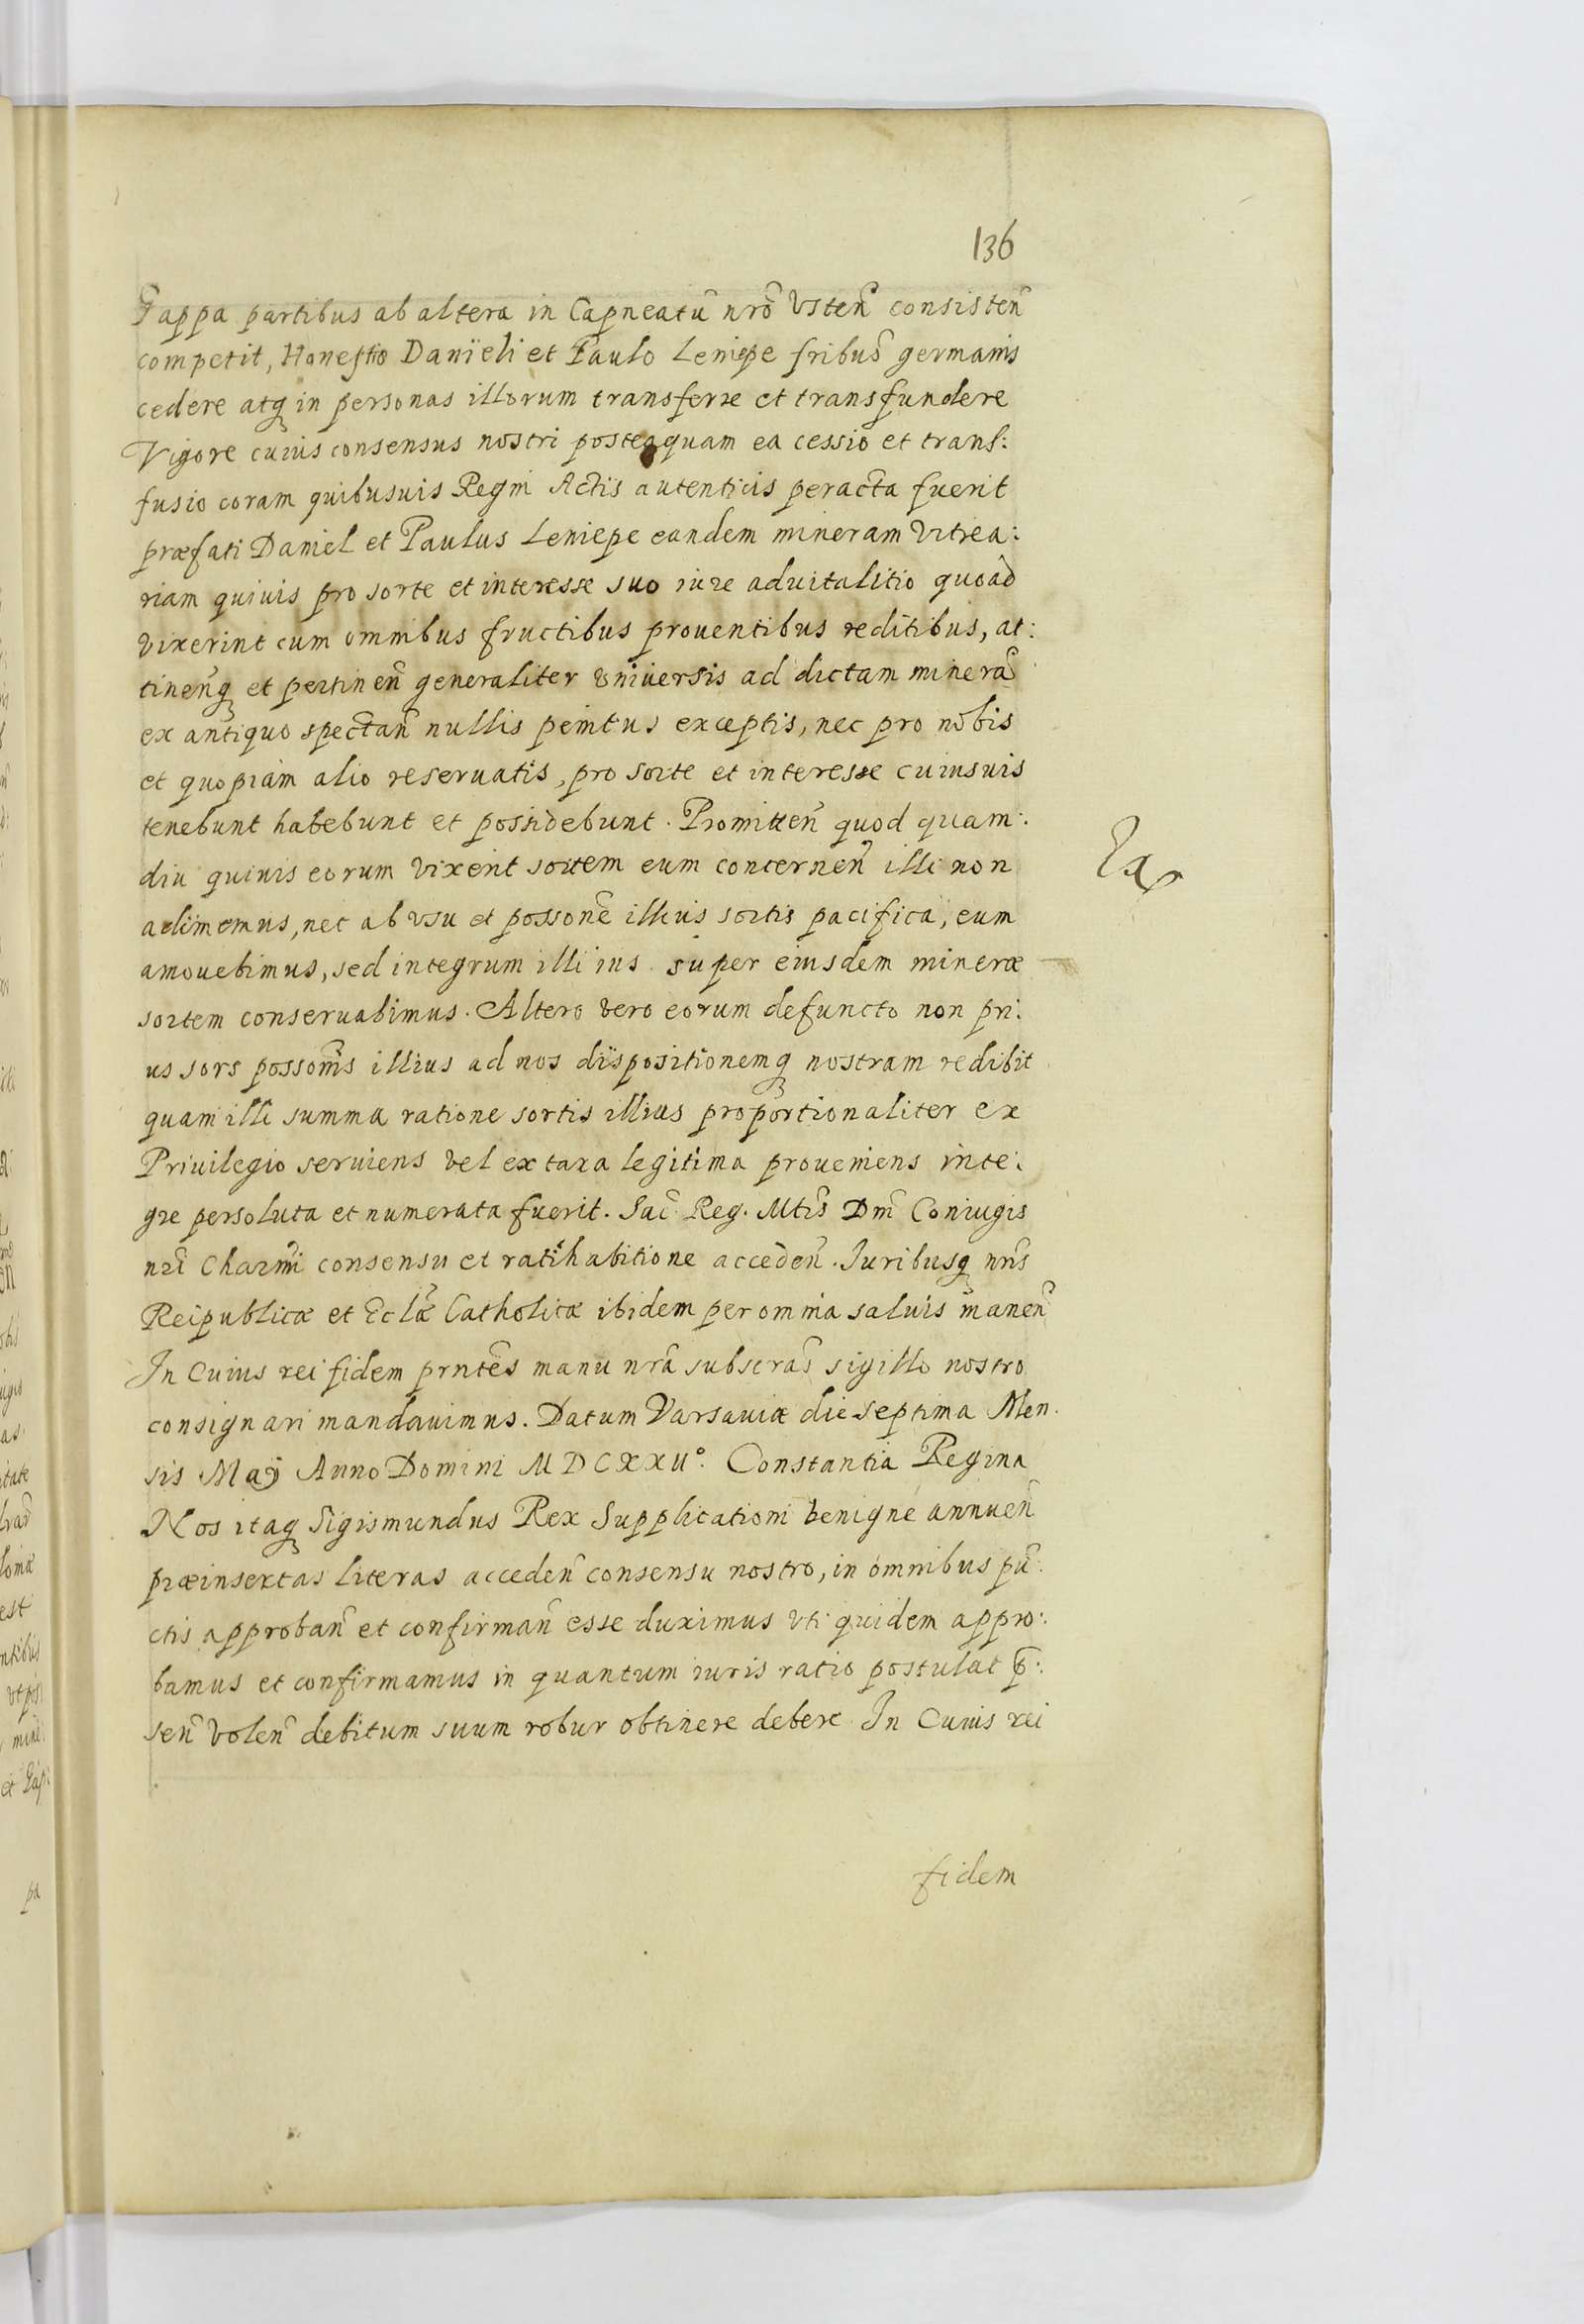 136
Gappa partibus ab altera in Capneatũ nrõ Vsteñ consisteñ
competit, Honestis Danïeli et Paulo Leniepe fribus̃ germanis
cedere atq in personas illorum transferre et transfundere
Vigore cuius consensus nostri posteaquam ea cessio et transf:
fusio coram quibusuis Regni Actis autenticis peracta fuerit
præfati Daniel et Paulus Leniepe eandem mineram Vitrea:
riam quiuis pro sorte et interesse suo iure aduitalitio quoad
vixerint cum omnibus fructibus prouentibus reditibus, at:
tineñq et pertineñ generaliter vniuersis ad dictam minerã
ex antiquo spectañ nullis penitus exceptis, nec pro nobis
et quopiam alio reseruatis, pro sorte et interesse cuiusuis
tenebunt habebunt et possidebunt. Promitteñ quod quam:
diu quiuis eorum vixerit sortem eum concerneñ illi non
adimemus, nec ab vsu et possonẽ illius sortis pacifica, eum
amouebimus, sed integrum illi ius super eiusdem mineræ
sortem conseruabimus. Altero vero eorum defuncto non pri:
us sors possonis̃ illius ad nos dispositionemq nostram redibit
quam illi summa ratione sortis illius proportionaliter ex
Priuilegio seruiens vel ex taxa legitima proueniens inte:
gre persoluta et numerata fuerit. Sac̃ Reg. Mtis̃ Dni̇̃ Coniugis
nri̇̃ Charmi̇̃ consensu et ratihabitione accedeñ. Iuribusq nris̃
Reipublicæ et Eclæ̃ Catholicæ ibidem per omnia saluis maneñ
In Cuius rei fidem prntes̃ manu nrã subscras̃ sigillo nostro
consignari mandauimus. Datum Varsauiæ die septima Men.
sis Maij Anno Domini MDCXXIIº. Constantia Regina
Nos itaq Sigismundus Rex Supplicationi benigne annueñ
præinsertas literas accedeñ consensu nostro, in omnibus pũ:
ctis approbañ et confirmañ esse duximus vti quidem appro:
bamus et confirmamus in quantum iuris ratio postulat p̃:
señ voleñ debitum suum robur obtinere debere In Cuius rei
fidem